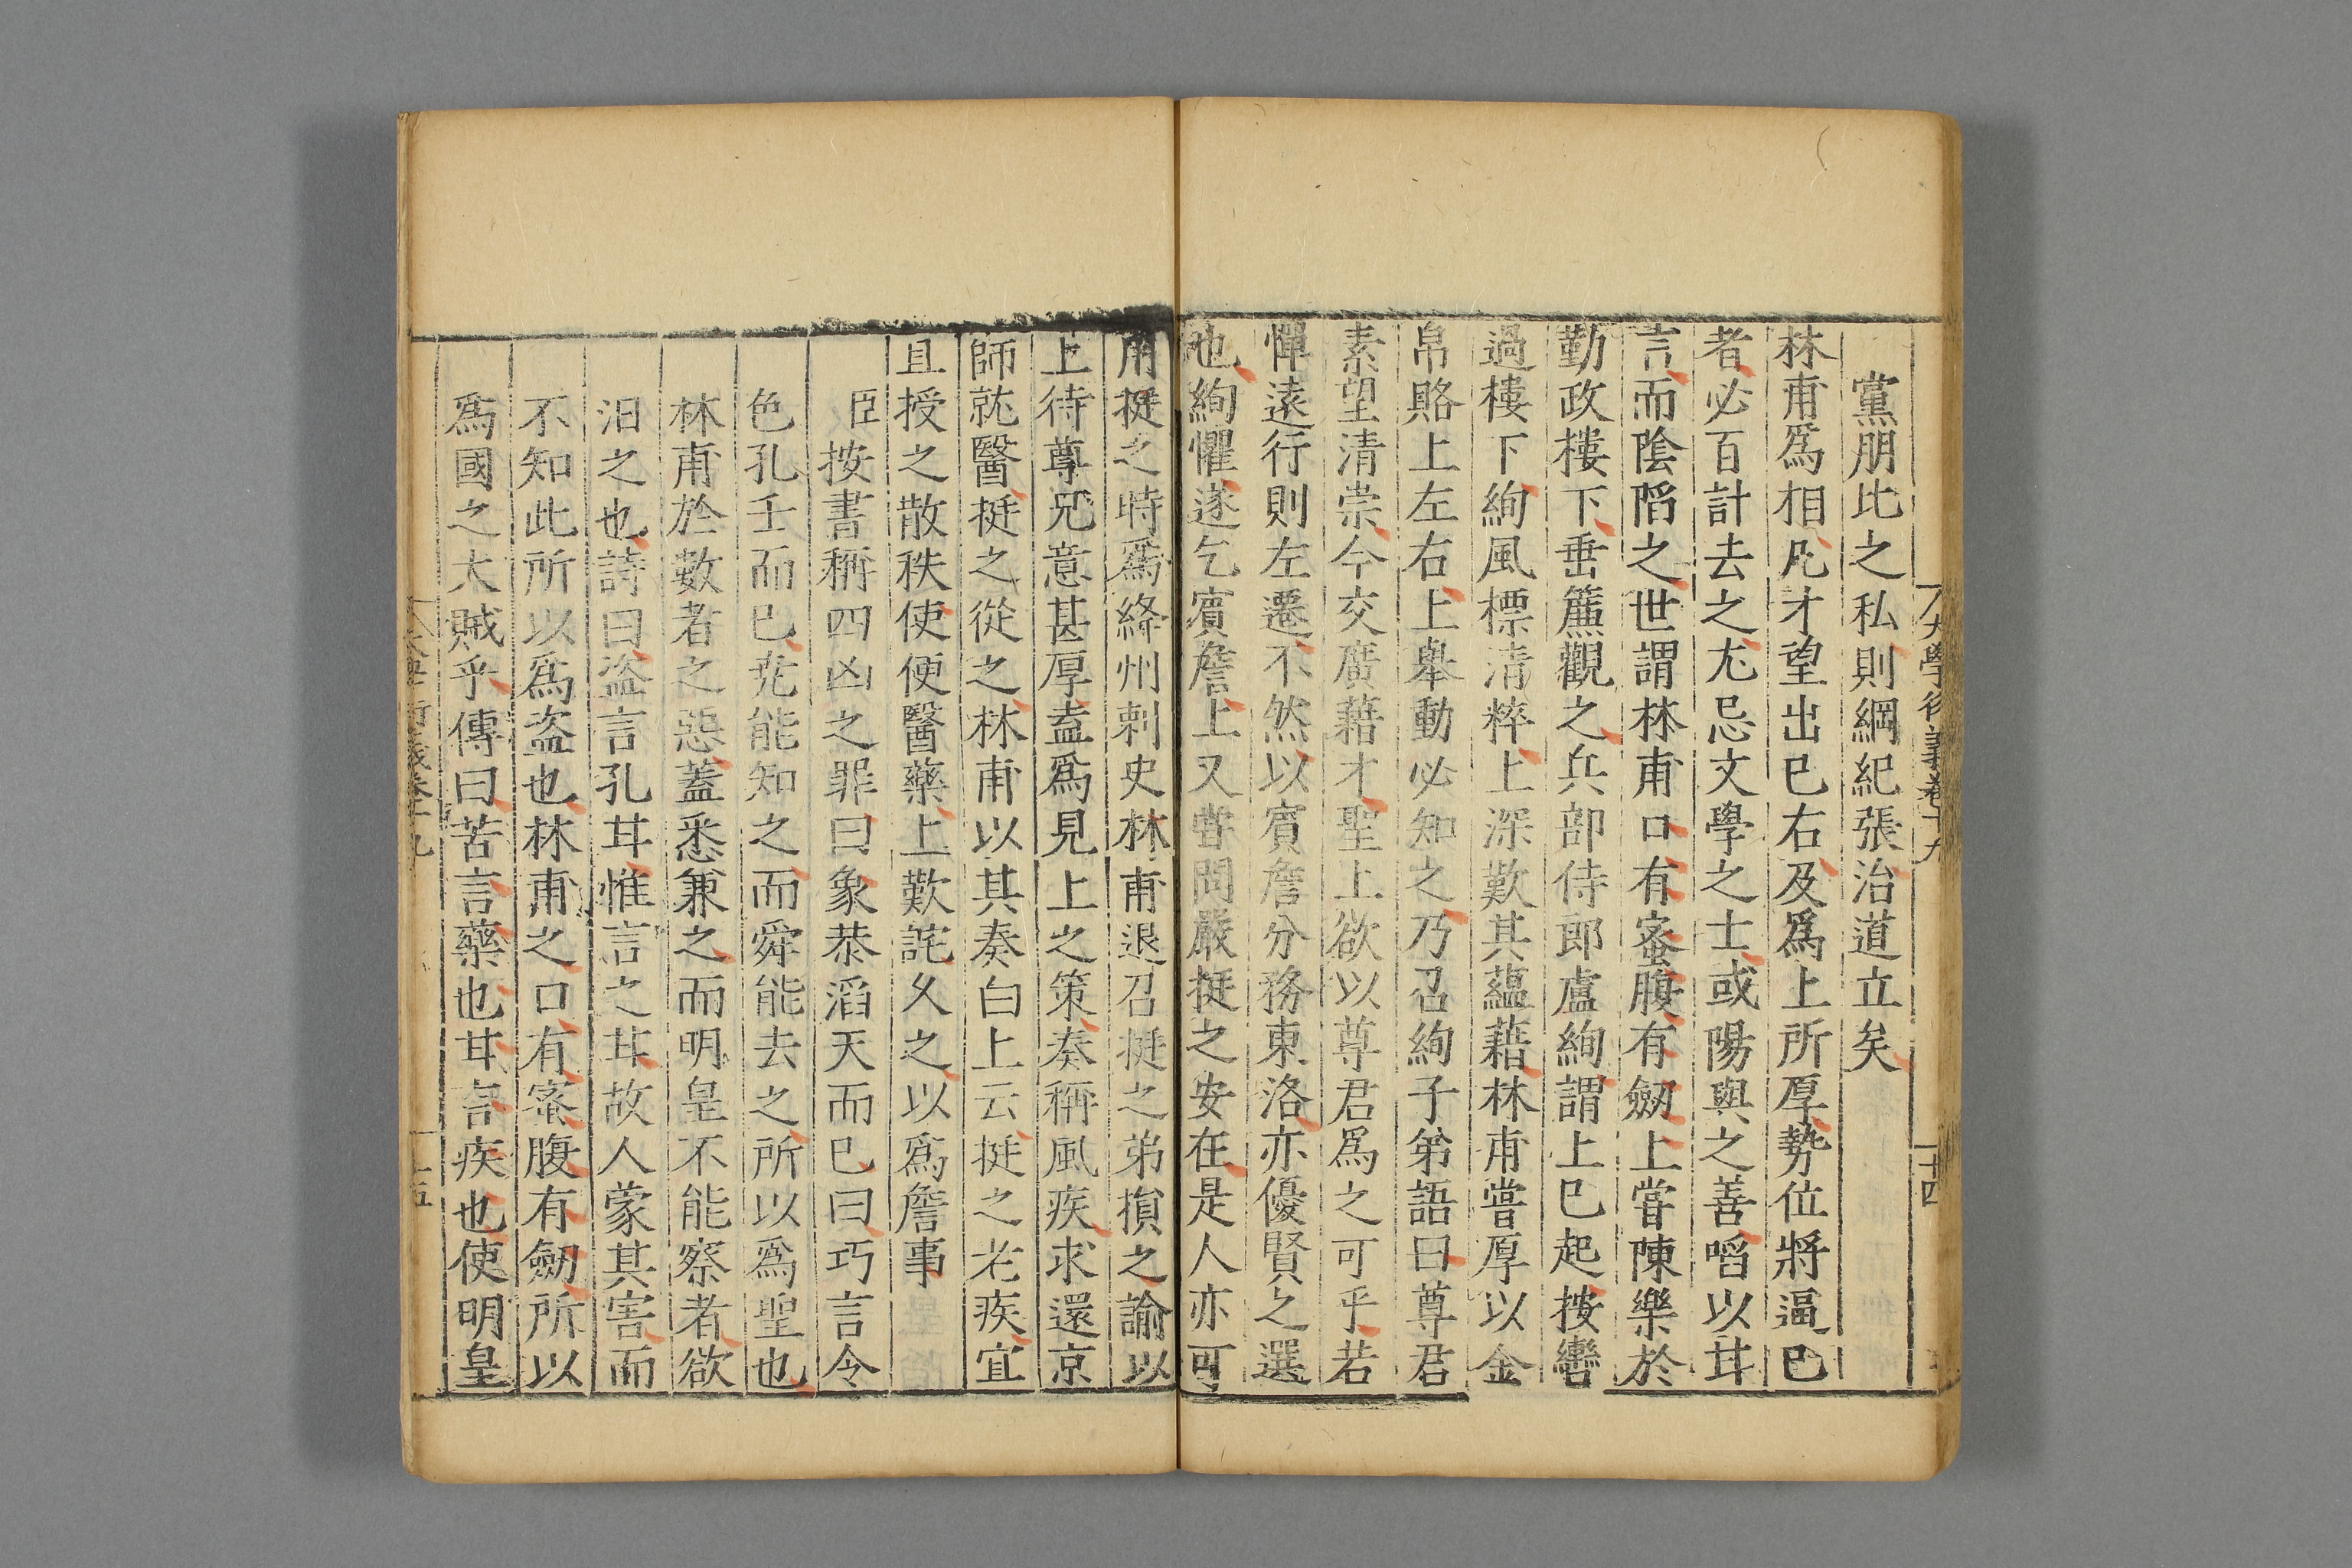 黨朋比之私則綱紀張治道立矣
林甫爲相凡才望出已右及爲上所厚勢位將逼已
者必百計去之尤忌文學之士或陽與之善啗以甘
言而隂䧟之世謂林甫口有蜜腹有劒上嘗陳樂於
勤政樓下垂簾觀之兵部侍郎盧絢謂上已起按轡
過樓下絢風標清粹上深歎其蘊藉林甫嘗厚以金
帛賂上左右上舉動必知之乃召絢子弟語曰尊君
素望清崇今交廣藉才聖上欲以尊君爲之可乎若
憚遠行則左遷不然以賓詹分務東洛亦優賢之選
也絢懼遂乞賓詹上又嘗問嚴挺之安在是人亦可
用挺之時爲絳州刺史林甫退召挺之弟損之諭以
上待尊兄意甚厚盍爲見上之策奏稱風疾求還京
師就醫挺之從之林甫以其奏白上云挺之老疾宜
且授之散秩使便醫藥上歎詫久之以爲詹事
臣按書稱四凶之罪曰象恭滔天而已曰巧言令
色孔壬而已尭能知之而舜能去之所以爲聖也
林甫於數者之惡蓋悉兼之而明皇不能察者欲
汨之也詩曰盜言孔甘惟言之甘故人蒙其害而
不知此所以爲盜也林甫之口有蜜腹有劒所以
爲國之大賊乎傳曰苦言藥也甘言疾也使明皇
大學衍義卷十九
十四
大學衍義卷十九
十五